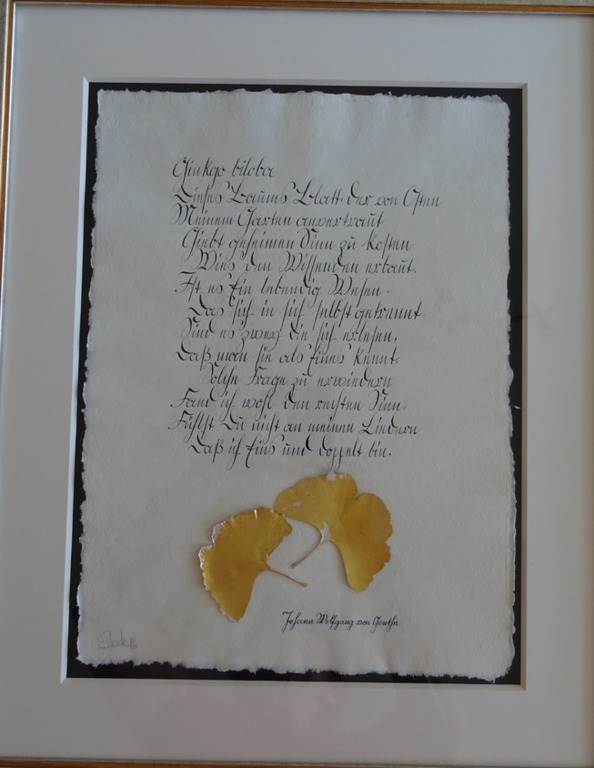 Ginkgo biloba
Dieses Baums Blatt, der von Osten
Meinem Garten anvertraut
Giebt geheimen Sinn zu kosten
Wies den Wissenden erbaut.
Ist es Ein lebendig Wesen.
Das sich in sich selbst getrennt
Sind es zwey die sich erlesen,
Daß man sie als Eines kennt.
Solche Frage zu erwiedern
Fand ich wohl den rechten Sinn.
Fühlst Du nicht an meinen Liedern
Daß ich Eins und doppelt bin.
Johann Wolfgang von Goethe